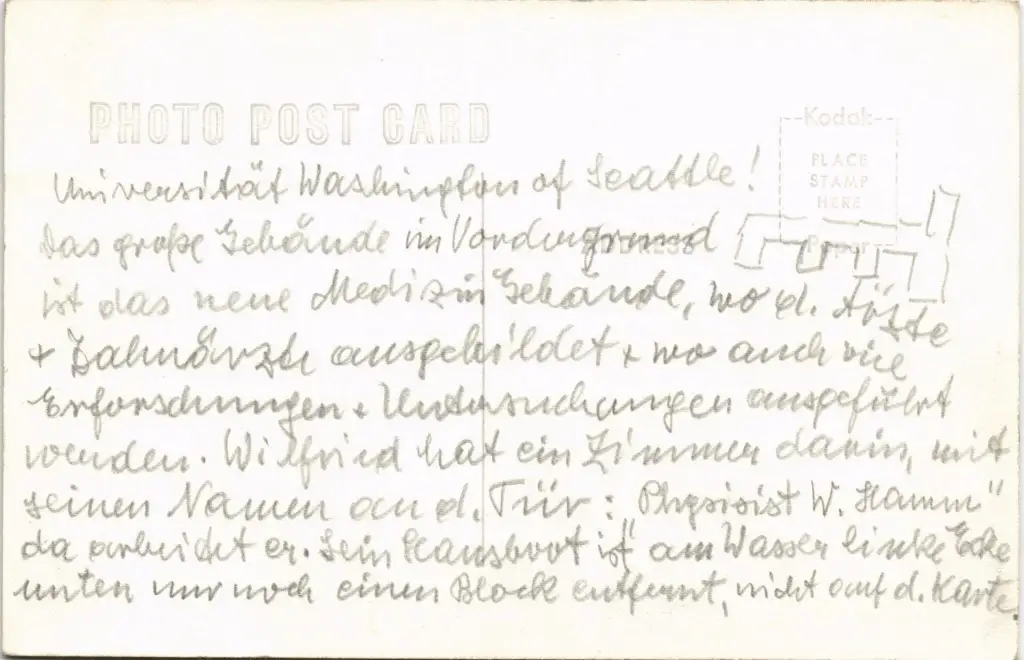 PHOTO POST CARD
Kodak
PLACE
STAMP
HERE
Paper
Universität Washington of Seattle!
Das große Gebäude im Vordergrund
ist das neue Medizin Gebäude, wo d. Ärzte
+ Zahnärzte ausgebildet + wo auch viele
Erforschungen + Untersuchungen ausgeführt
werden. Wilfried hat ein Zimmer darin, mit
seinen Namen an d. Tür: "Physisist W. Hamm"
da arbeidet er. Sein Hausboot ist am Wasser linke Ecke
unten nur noch einen Block entfernt, nicht auf d. Karte.